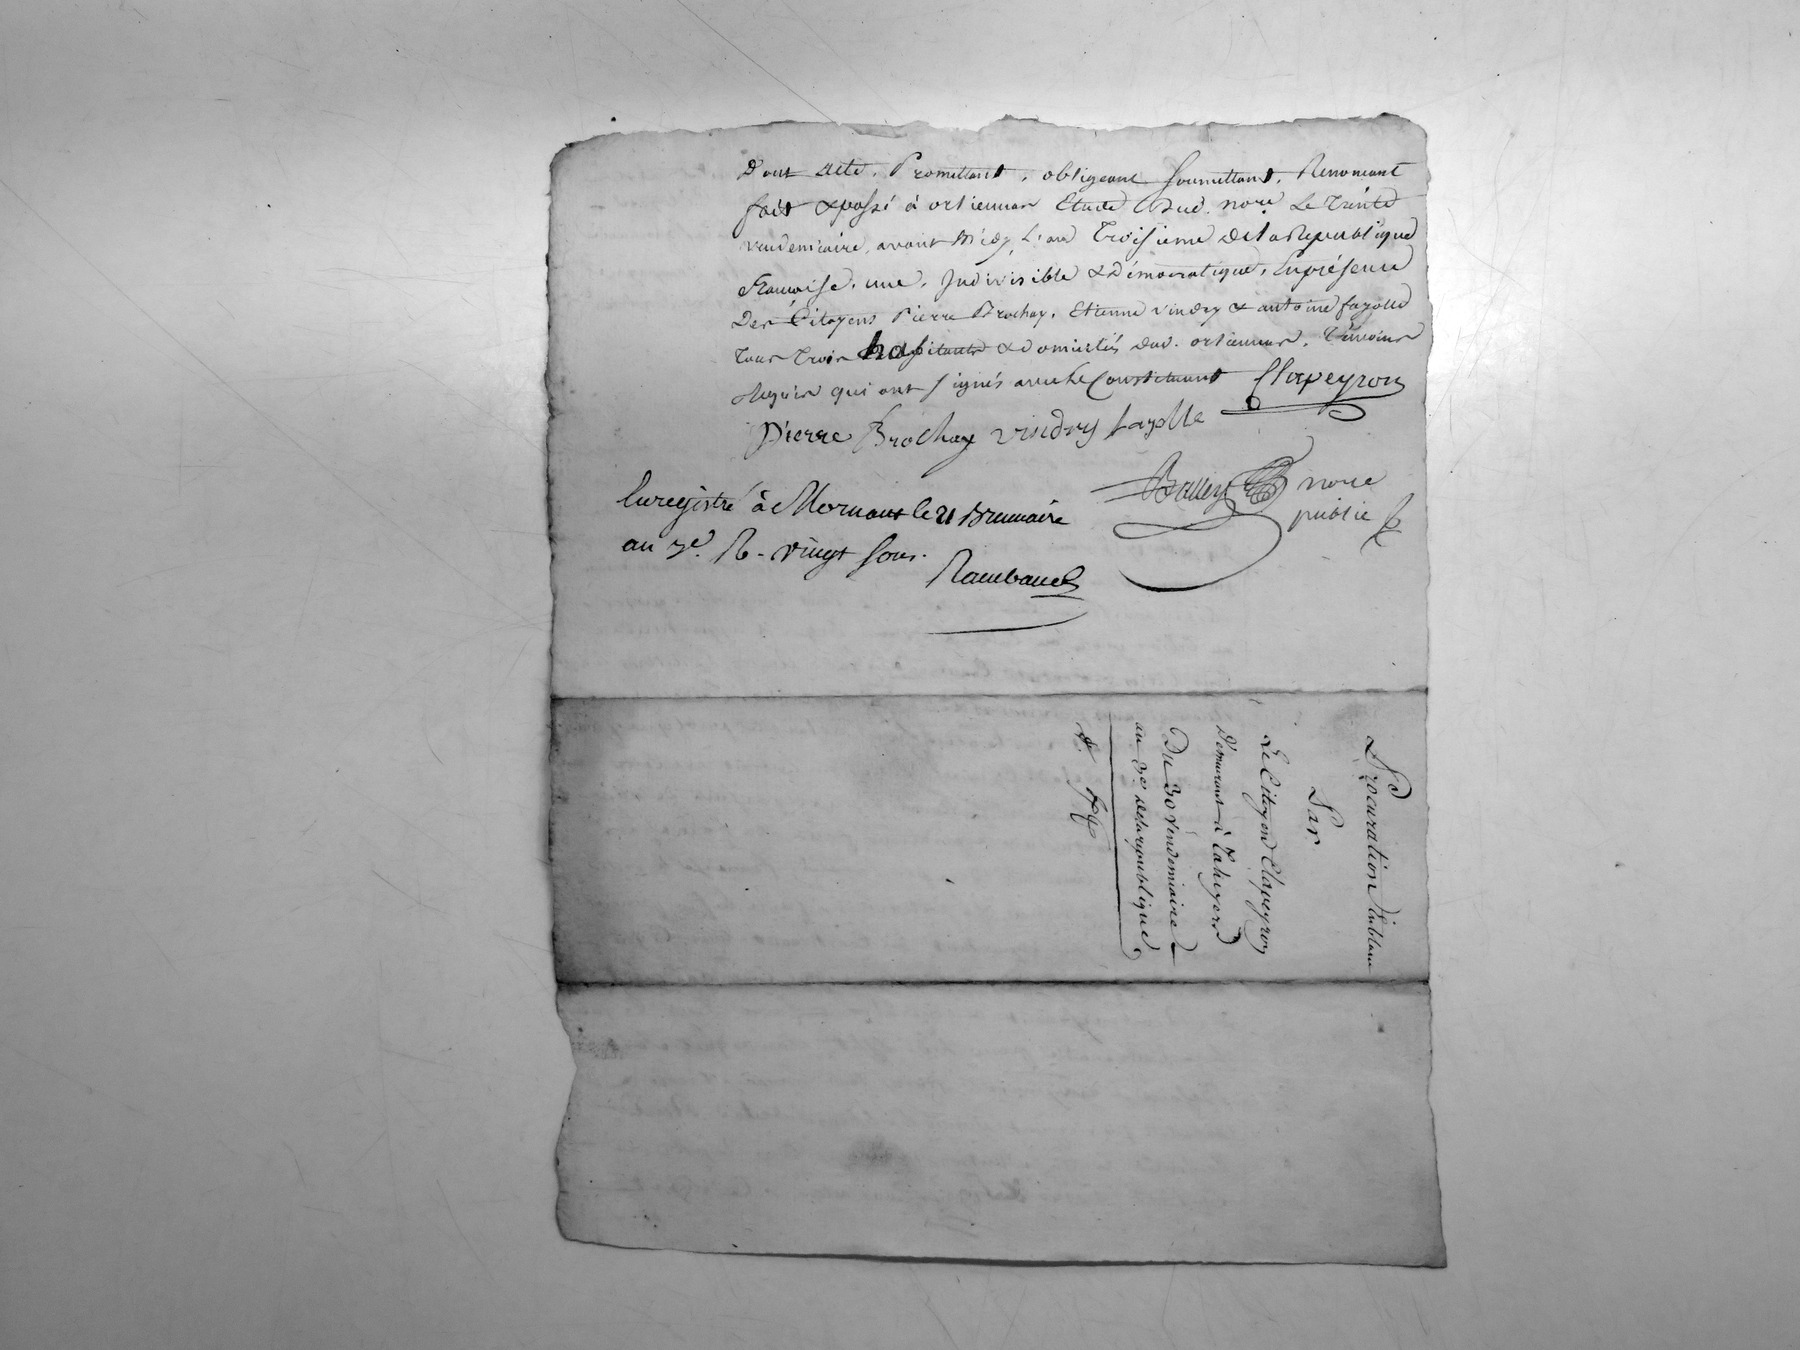 Dont acte. Promettant, obligeant Soumettant, Renoncant
fait & passé à orlienuas Etude dud. nore. Le Trente
vendemiaire, avant Midy L'an Troisieme de la Republique
françoise, une, Indivisible & Démocratique, En présence
Des Citoyens Pierre Brochay, Etienne vindry & antoine fayolle
Tous Trois habitants & domiciliés dud. orlienuas, Témoins
Requis qui ont signés avec le Constituant Clapeyron
Pierre Brochay vindry fayolle
Balley nore
public
Enregistré à Mornant le 21 Brumaire
an 3e. R. vingt sous.
Raimbaud
Procuration En blanc
Par
Le Citoyen Clapeyron
Demeurant à Taluyers
Du 30 vendemiaire
an 3e. de la republique